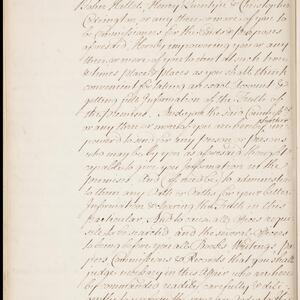 John Hallet, Henry Swinbye & Christopher
Codrington, or any three or more of you to
be Commissioners for the Ends & Purposes
aforesaid, Hereby impowering you or any
three or more of you to meet At such time
& times place & places as you shall think
convenient for taking an exact Account &
getting full Information of the Truth of
the premises. And you the said Commissrs
or any three or more of you are hereby further
impowered to send for any person or persons
who may be by you as aforesaid thought
capable to give you Information in the
premises And if need be to administer
them any Oath or Oaths for your better
Information & Scaring the Truth in this
particular And to cause all Offices requi-
site to be searched and the several Officers
to bring before you all Books Writings, Pa-
pers Commissions & Records that you shall
judge necessary in this Affair who are here-
by commanded readily carefully & dili-